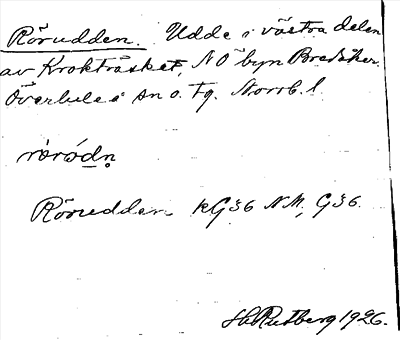 Rörudden. Udde i västra delen
av Krokträsket, NO byn Bredåker.
Överluleå sn o. tg. Norrb. l.
Rörudden kG36 N.M. G36.
H. Rutberg 1926.